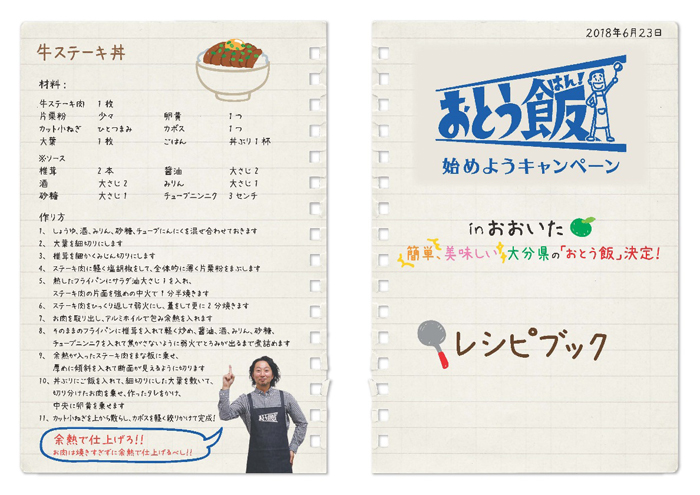 牛ステーキ丼
材料：
牛ステーキ肉 1 枚
片栗粉 少々 卵黄 1 つ
カット小ねぎ ひとつまみ カボス 1 つ
大葉 1 枚 ごはん 丼ぶり 1 杯
※ソース
椎茸 2 本 醤油 大さじ 2
酒 大さじ 2 みりん 大さじ 1
砂糖 大さじ 1 チューブニンニク 3 センチ
作り方
1、しょうゆ、酒、みりん、砂糖、チューブにんにくを混ぜ合わせておきます
2、大葉を細切りにします
3、椎茸を細かくみじん切りにします
4、ステーキ肉に軽く塩胡椒をして、全体的に薄く片栗粉をまぶします
5、熱したフライパンにサラダ油大さじ 1 を入れ、
ステーキ肉の片面を強めの中火で 1 分半焼きます
6、ステーキ肉をひっくり返して弱火にし、蓋をして更に 2 分焼きます
7、お肉を取り出し、アルミホイルで包み余熱を入れます
8、そのままのフライパンに椎茸を入れて軽く炒め、醤油、酒、みりん、砂糖、
チューブニンニクを入れて焦がさないように弱火でとろみが出るまで煮詰めます
9、余熱が入ったステーキ肉をまな板に乗せ、
厚めに傾斜を入れて断面が見えるように切ります
10、丼ぶりにご飯を入れて、細切りにした大葉を敷いて、
切り分けたお肉を乗せ、作ったタレをかけ、
中央に卵黄を乗せます
11、カット小ねぎを上から散らし、カボスを軽く絞りかけて完成!
余熱で仕上げろ!!
お肉は焼きすぎずに余熱で仕上げるべし!!
おとう飯
2018年6月23日
おとう飯
はん!
始めようキャンペーン
in おおいた
簡単、美味しい大分県の「おとう飯」決定!
レシピブック